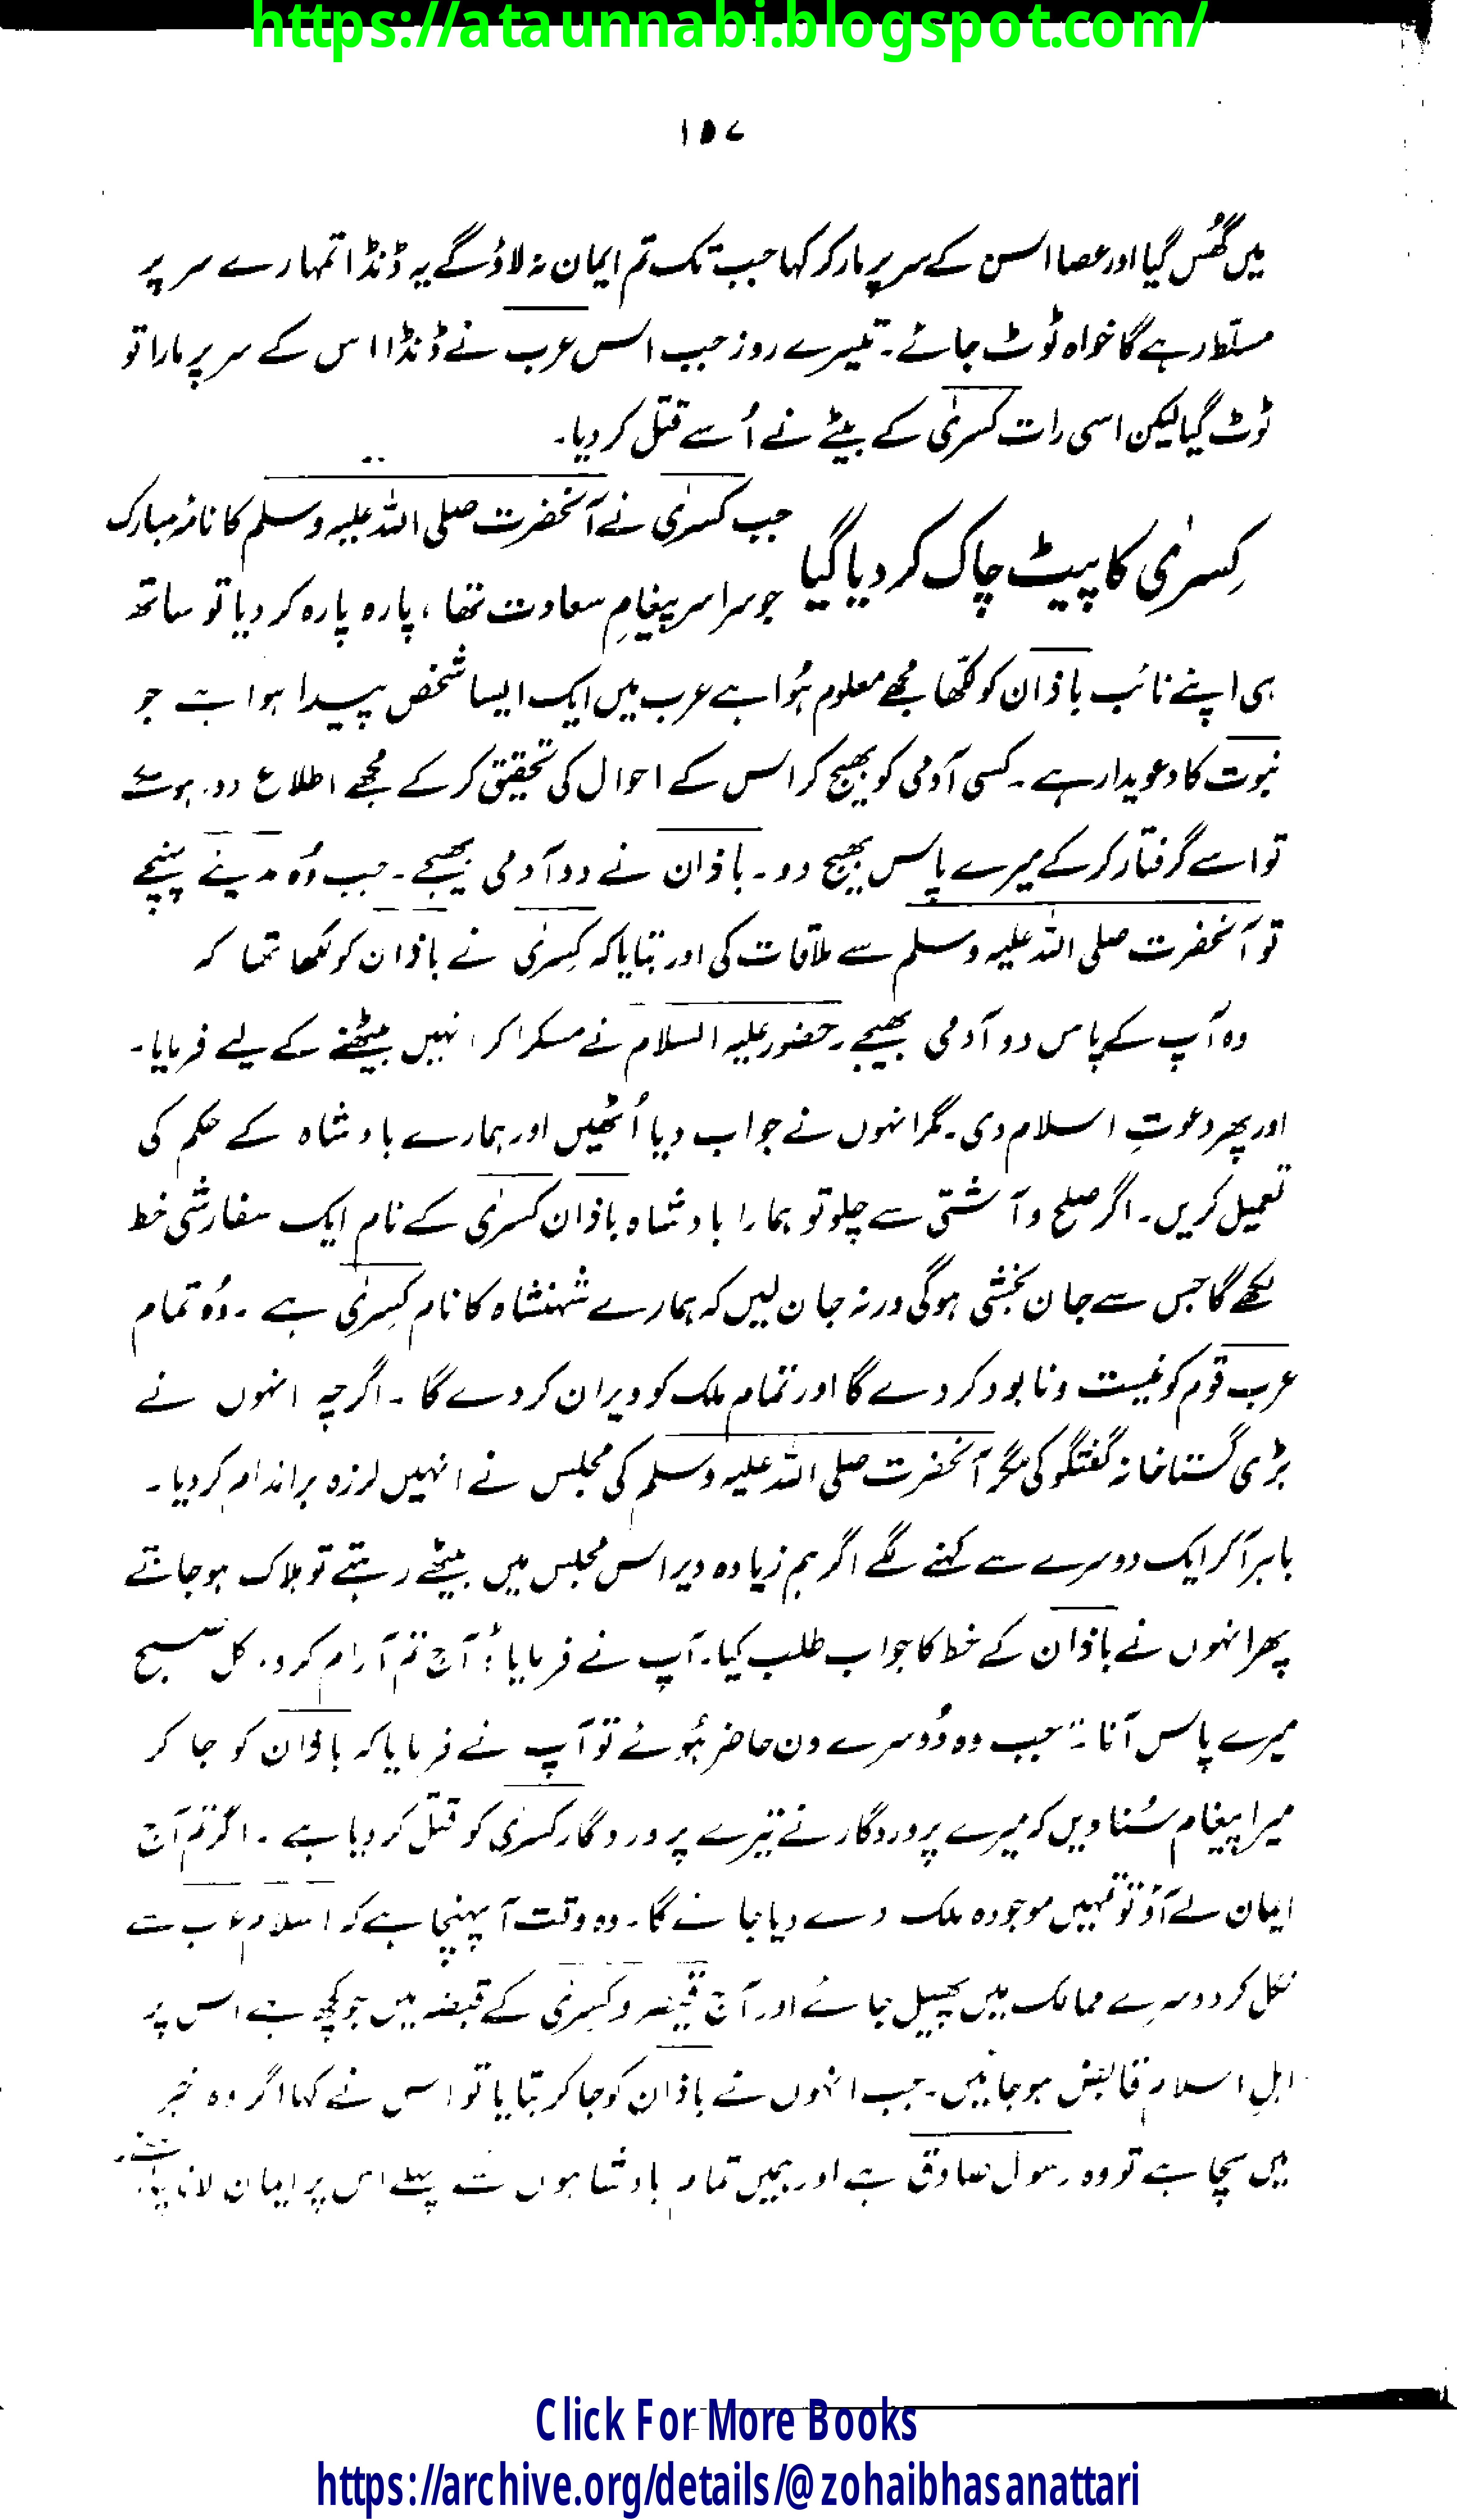 https://ataunnabi.blogspot.com/
۱۵۷
میں گھُس گیا اور عصا اس کے سر پر مار کر کہا جب تک تم ایمان نہ لاؤ گے یہ ڈنڈا تمہارے سر پر
مسلّط رہے گا خواہ ٹوٹ جائے۔ تیسرے روز جب اس عرب نے ڈنڈا اس کے سر پر مارا تو
ٹوٹ گیا لیکن اسی رات کسریٰ کے بیٹے نے اُسے قتل کر دیا۔
کِسریٰ کا پیٹ چاک کر دیا گیا
جب کسریٰ نے آنحضرت صلی اللہ علیہ وسلم کا نامۂ مبارک
جو سراسر پیغامِ سعادت تھا، پارہ پارہ کر دیا تو ساتھ
ہی اپنے نائب باذان کو لکھا مجھے معلوم ہُوا ہے عرب میں ایک ایسا شخص پیدا ہوا ہے جو
نبوت کا دعویدار ہے۔ کسی آدمی کو بھیج کر اس کے احوال کی تحقیق کر کے مجھے اطلاع دو۔ ہوسکے
تو اسے گرفتار کر کے میرے پاس بھیج دو۔ باذان نے دو آدمی بھیجے۔ جب وُہ مدینے پہنچے
تو آنحضرت صلی اللہ علیہ وسلم سے ملاقات کی اور بتایا کہ کِسریٰ نے باذان کو لکھا تھا کہ
وہ آپ کے پاس دو آدمی بھیجے۔ حضور علیہ السلام نے مسکرا کر انہیں بیٹھنے کے لیے فرمایا۔
اور پھر دعوتِ اسلام دی۔ مگر انہوں نے جواب دیا اُٹھیں اور ہمارے بادشاہ کے حکم کی
تعمیل کریں۔ اگر صلح و آشتی سے چلو تو ہمارا بادشاہ باذان کسریٰ کے نام ایک سفارشی خط
لکھے گا جس سے جان بخشی ہوگی ورنہ جان لیں کہ ہمارے شہنشاہ کا نام کِسریٰ ہے۔ وُہ تمام
عرب قوم کو نیست و نابود کر دے گا اور تمام ملک کو ویران کر دے گا۔ اگرچہ انہوں نے
بڑی گستاخانہ گفتگو کی مگر آنحضرت صلی اللہ علیہ وسلم کی مجلس نے انہیں لرزہ براندام کر دیا۔
باہر آکر ایک دوسرے سے کہنے لگے اگر ہم زیادہ دیر اس مجلس میں بیٹھے رہتے تو ہلاک ہو جاتے
پھر انہوں نے باذان کے خط کا جواب طلب کیا۔ آپ نے فرمایا: آج تم آرام کرو۔ کل صبح
میرے پاس آنا۔ جب وہ دُوسرے دن حاضر ہُوئے تو آپ نے فرمایا کہ باذان کو جا کر
میرا پیغام سُنا دیں کہ میرے پروردگار نے تیرے پروردگار کسریٰ کو قتل کر دیا ہے۔ اگر تم آج
ایمان لے آؤ تو تمہیں موجودہ ملک دے دیا جائے گا۔ وہ وقت آپہنچا ہے کہ اسلام عرب سے
نکل کر دوسرے ممالک میں پھیل جائے اور آج قیصر و کسریٰ کے قبضہ میں جو کچھ ہے اس پر
اہلِ اسلام قابض ہو جائیں۔ جب انہوں نے باذان کو جا کر بتایا تو اس نے کہا اگر وہ خبر
میں سچا ہے تو وہ رسول صادق ہے اور ہمیں تمام بادشاہوں سے پہلے اس پر ایمان لانا چاہئے۔
Click For More Books
https://archive.org/details/@zohaibhasanattari